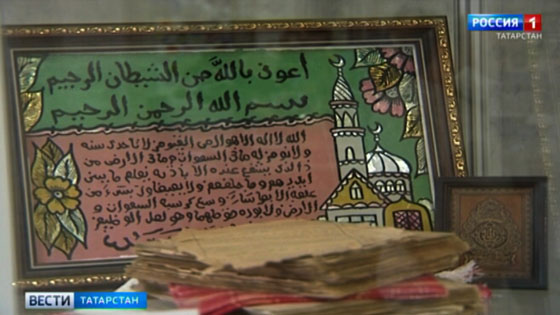 РОССИЯ 1
ТАТАРСТАН
أعوذ بالله من الشيطان الرجيم
بسم الله الرحمن الرحيم
الله لا اله الا هو الحي القيوم لا تاخذه سنه
ولا نوم له ما في السموات وما في الارض من
ذا الذي يشفع عنده الا باذنه يعلم ما بين
ايديهم وما خلفهم ولا يحيطون بشيء من
علمه الا بما شاء وسع كرسيه السموات و
الارض ولا يوده حفظهما وهو العلي العظيم
ВЕСТИ ТАТАРСТАН